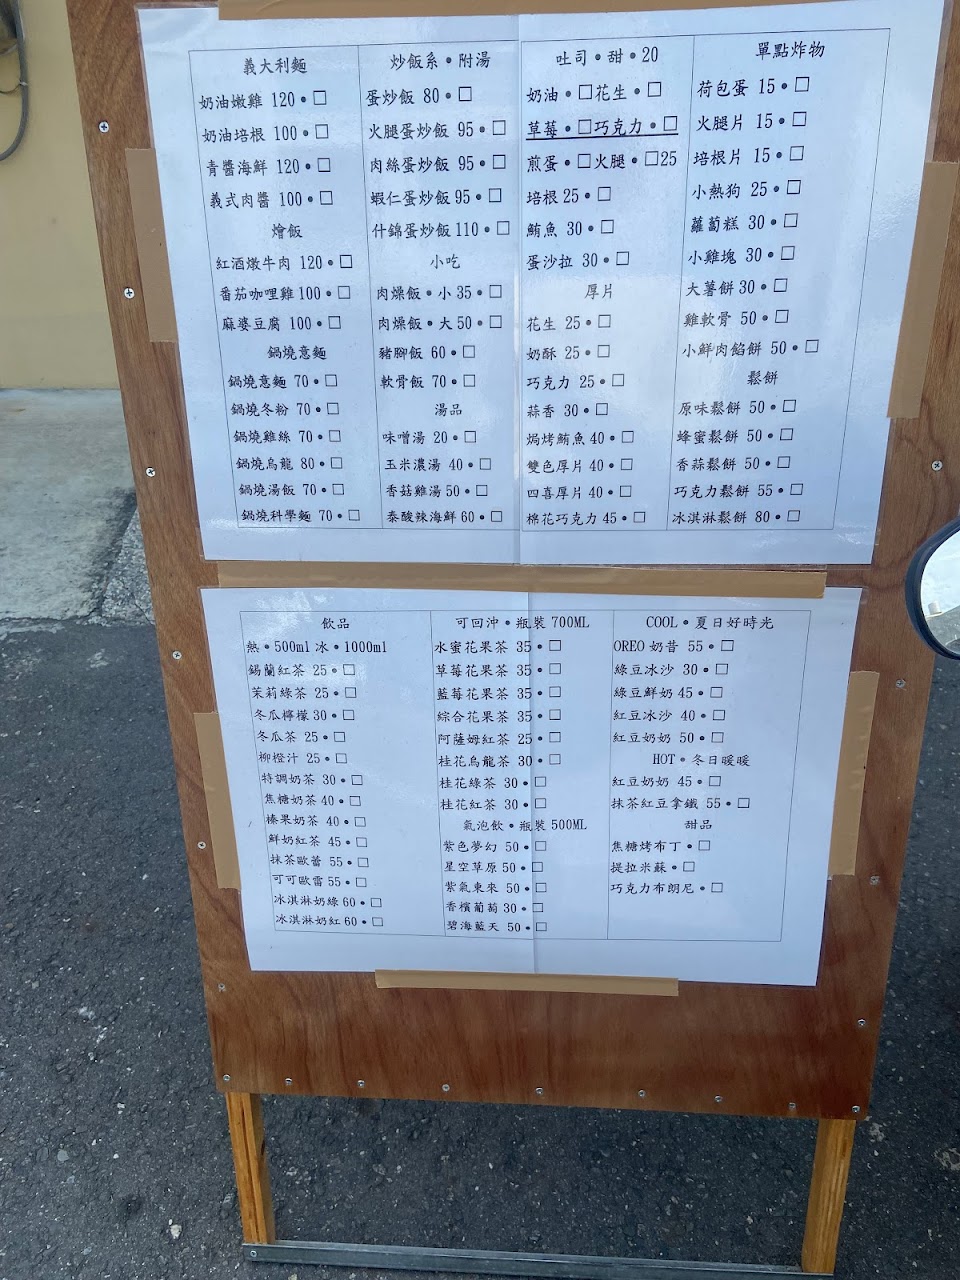 義大利麵
奶油嫩雞 120•□
奶油培根 100•□
青醬海鮮 120•□
義式肉醬 100•□
燴飯
紅酒燉牛肉 120•□
番茄咖哩雞100•□
麻婆豆腐 100•□
鍋燒意麵
鍋燒意麵 70•□
鍋燒冬粉 70•□
鍋燒雞絲 70•□
鍋燒烏龍 80•□
鍋燒湯飯 70•□
鍋燒科學麵 70•□
炒飯系•附湯
蛋炒飯 80•□
火腿蛋炒飯 95•□
肉絲蛋炒飯 95•□
蝦仁蛋炒飯95•□
什錦蛋炒飯110•□
小吃
肉燥飯•小35•□
肉燥飯•大50•□
豬腳飯 60•□
軟骨飯 70•□
湯品
味噌湯 20•□
玉米濃湯 40•□
香菇雞湯50•□
泰酸辣海鮮60•□
吐司•甜•20
奶油•□花生•□
草莓•□巧克力•□
煎蛋•□火腿•□25
培根25•□
鮪魚 30•□
蛋沙拉 30•□
厚片
花生 25•□
奶酥 25•□
巧克力 25•□
蒜香 30•□
焗烤鮪魚40•□
雙色厚片40•□
四喜厚片40•□
棉花巧克力 45•□
單點炸物
荷包蛋 15•□
火腿片 15•□
培根片 15•□
小熱狗 25•□
蘿蔔糕 30•□
小雞塊 30•□
大薯餅30•□
雞軟骨 50•□
小鮮肉餡餅 50•□
鬆餅
原味鬆餅 50•□
蜂蜜鬆餅 50•□
香蒜鬆餅 50•□
巧克力鬆餅 55•□
冰淇淋鬆餅 80•□
飲品
熱•500ml 冰•1000ml
錫蘭紅茶 25•□
茉莉綠茶 25•□
冬瓜檸檬30•□
冬瓜茶 25•□
柳橙汁 25•□
特調奶茶 30•□
焦糖奶茶 40•□
榛果奶茶 40•□
鮮奶紅茶 45•□
抹茶歐蕾 55•□
可可歐雷55•□
冰淇淋奶綠60•□
冰淇淋奶紅60•□
可回沖•瓶裝 700ML
水蜜花果茶 35•□
草莓花果茶 35•□
藍莓花果茶 35•□
綜合花果茶 35•□
阿薩姆紅茶 25•□
桂花烏龍茶 30•□
桂花綠茶 30•□
桂花紅茶 30•□
氣泡飲•瓶裝 500ML
紫色夢幻 50•□
星空草原50•□
紫氣東來 50•□
香檳葡萄30•□
碧海藍天 50•□
COOL•夏日好時光
OREO 奶昔 55•□
綠豆冰沙 30•□
綠豆鮮奶45•□
紅豆冰沙 40•□
紅豆奶奶 50•□
HOT•冬日暖暖
紅豆奶奶 45•□
抹茶紅豆拿鐵 55•□
甜品
焦糖烤布丁•□
提拉米蘇•□
巧克力布朗尼•□